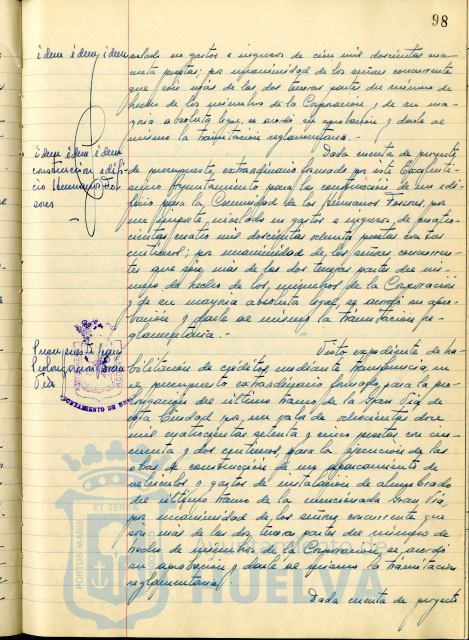 98
idem idem idem
nelado en gastos e ingresos de cien mil doscientas
peseta pesetas; por unanimidad de los señores concurrente
que son mas de las dos terceras partes del número de
hecho de los miembros de la Corporación y de su ma-
yoria absoluta legal, se acordó su aprobación y darle al
mismo la tramitación reglamentaria.-
idem idem idem
construccion edifi-
cio Hermanos Fos-
sores
Dada cuenta de proyecto
de presupuesto extraordinario formado por este Excelentí-
simo Ayuntamiento para la construcción de un edi-
ficio para la Comunidad de los Hermanos Fossores, por
un importe nivelado en gastos e ingresos de cuatro-
cientas cuatro mil doscientas ochenta pesetas con
centimos; por unanimidad de los señores concurren-
tes que son mas de las dos terceras partes del nú-
mero de hecho de los miembros de la Corporación
y de su mayoria absoluta legal, se acordó su apro-
bación y darle al mismo la tramitación re-
glamentaria.-
Presupuesto
Prolongación Gran
Via
AYUNTAMIENTO DE HUELVA
Visto expediente de ha-
bilitación de créditos mediante transferencia, en
el presupuesto extraordinario formado, para la pro-
longación del último tramo de la Gran Via de
esta Ciudad por un valor de ochocientas doce
mil cuatrocientas setenta y cinco pesetas con cin-
cuenta y dos centimos, para la ejecución de las
obras de construcción de un aparcamiento de
vehiculos y gastos de instalación de alumbrado
del último tramo de la mencionada Gran Via,
por unanimidad de los señores concurrente que
son mas de las dos terceras partes del número de
hecho de miembros de la Corporación, se acordó
su aprobación y darle al mismo la tramitación
reglamentaria.
Dada cuenta de proyecto
ET TERRA
PORTUS MARIS
CUSTODIA
Ayuntamiento de
HUELVA